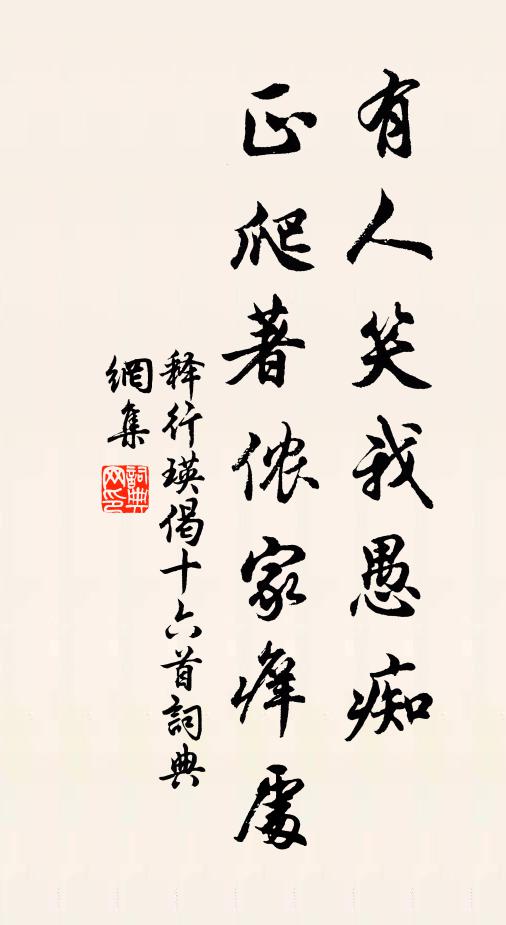 有人笑我愚痴
正爬著侬家痒處
释行瑛偈十六首詞典
網集
詞典
网印